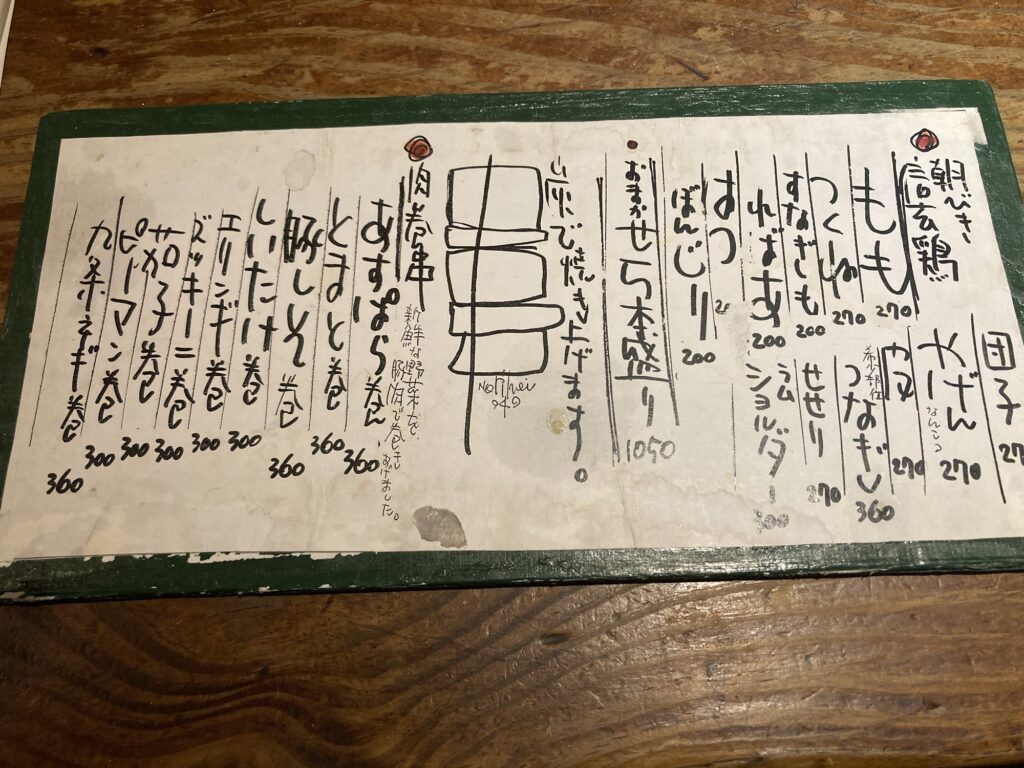 朝びき
信玄鶏
もも 270
つくね 270
すなぎも 200
ればあ 200
はつ
ぼんじり 200
団子
やげん
なんこつ
270
270
希少部位
つなぎ
360
せせり 270
ラム
ショルダー 300
おまかせ5本盛り 1050
炭火で焼き上げます。
肉巻串
新鮮な野菜を、
豚肉で巻き
あげました。
あすぱら巻 360
とまと巻 360
豚しそ巻 360
しいたけ巻 300
エリンギ巻 300
ズッキーニ巻 300
茄子巻 300
ピーマン巻 300
九条ネギ巻 360